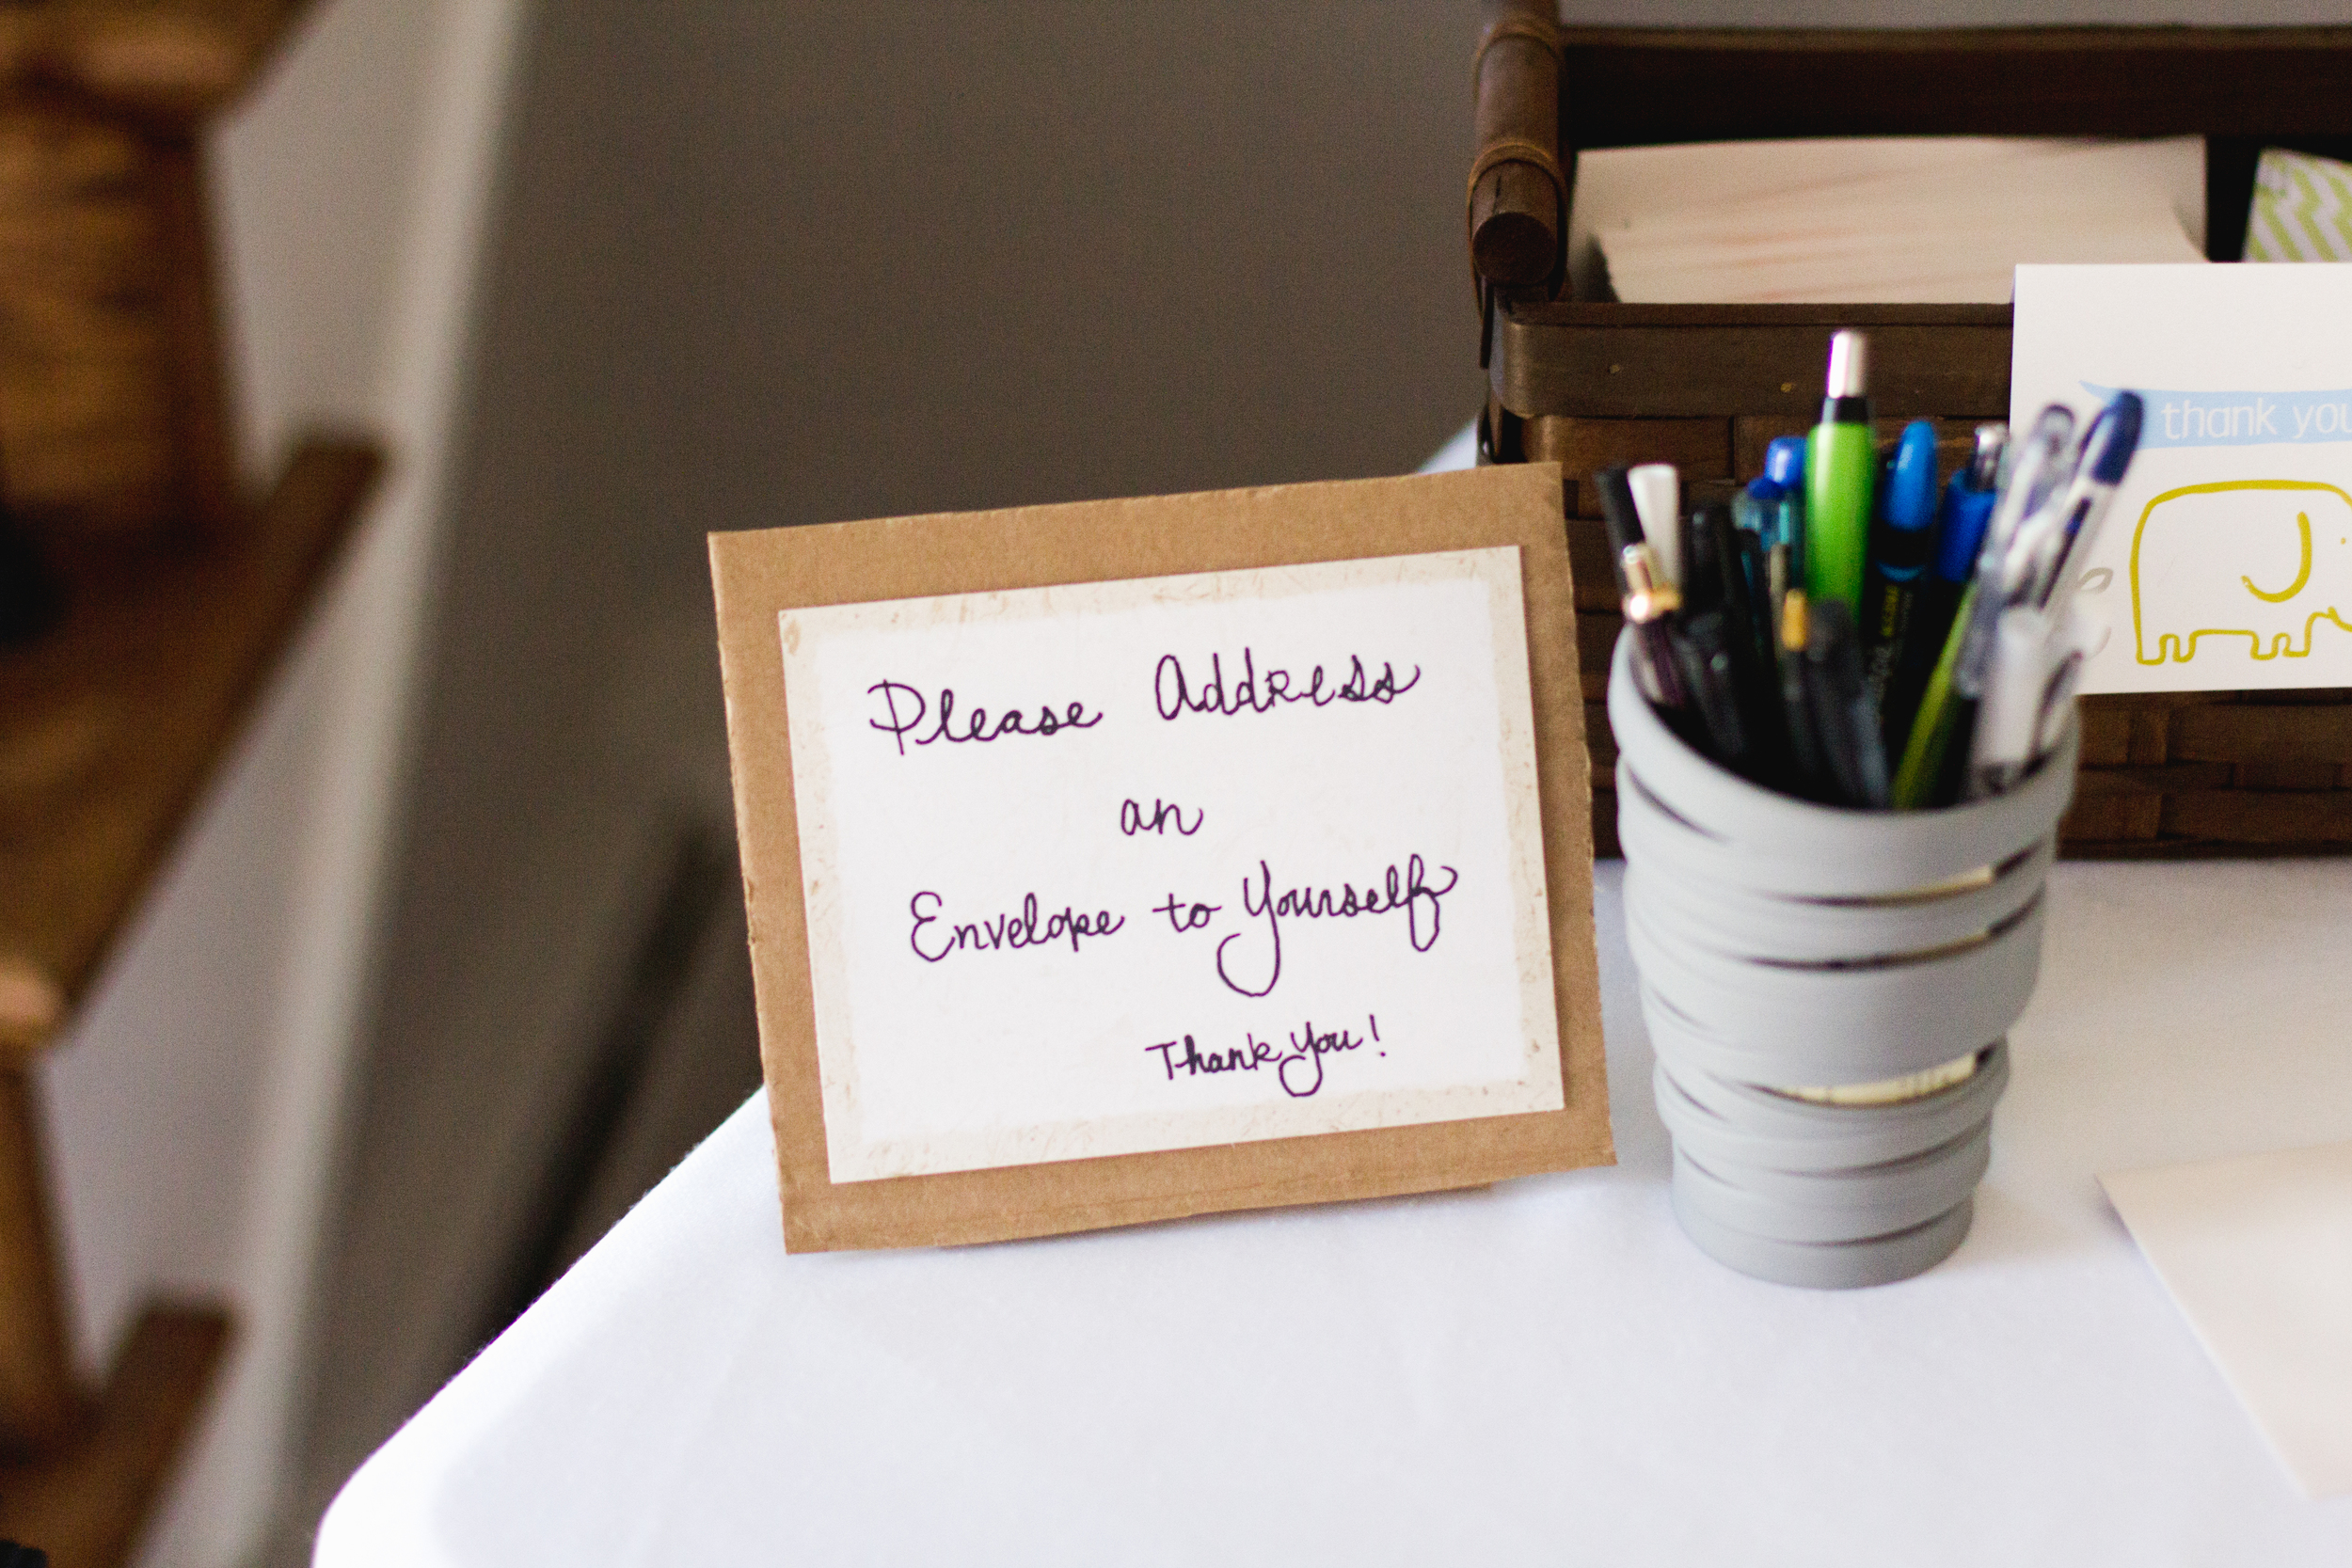 Please Address
an
Envelope to Yourself
Thank you!
thank you